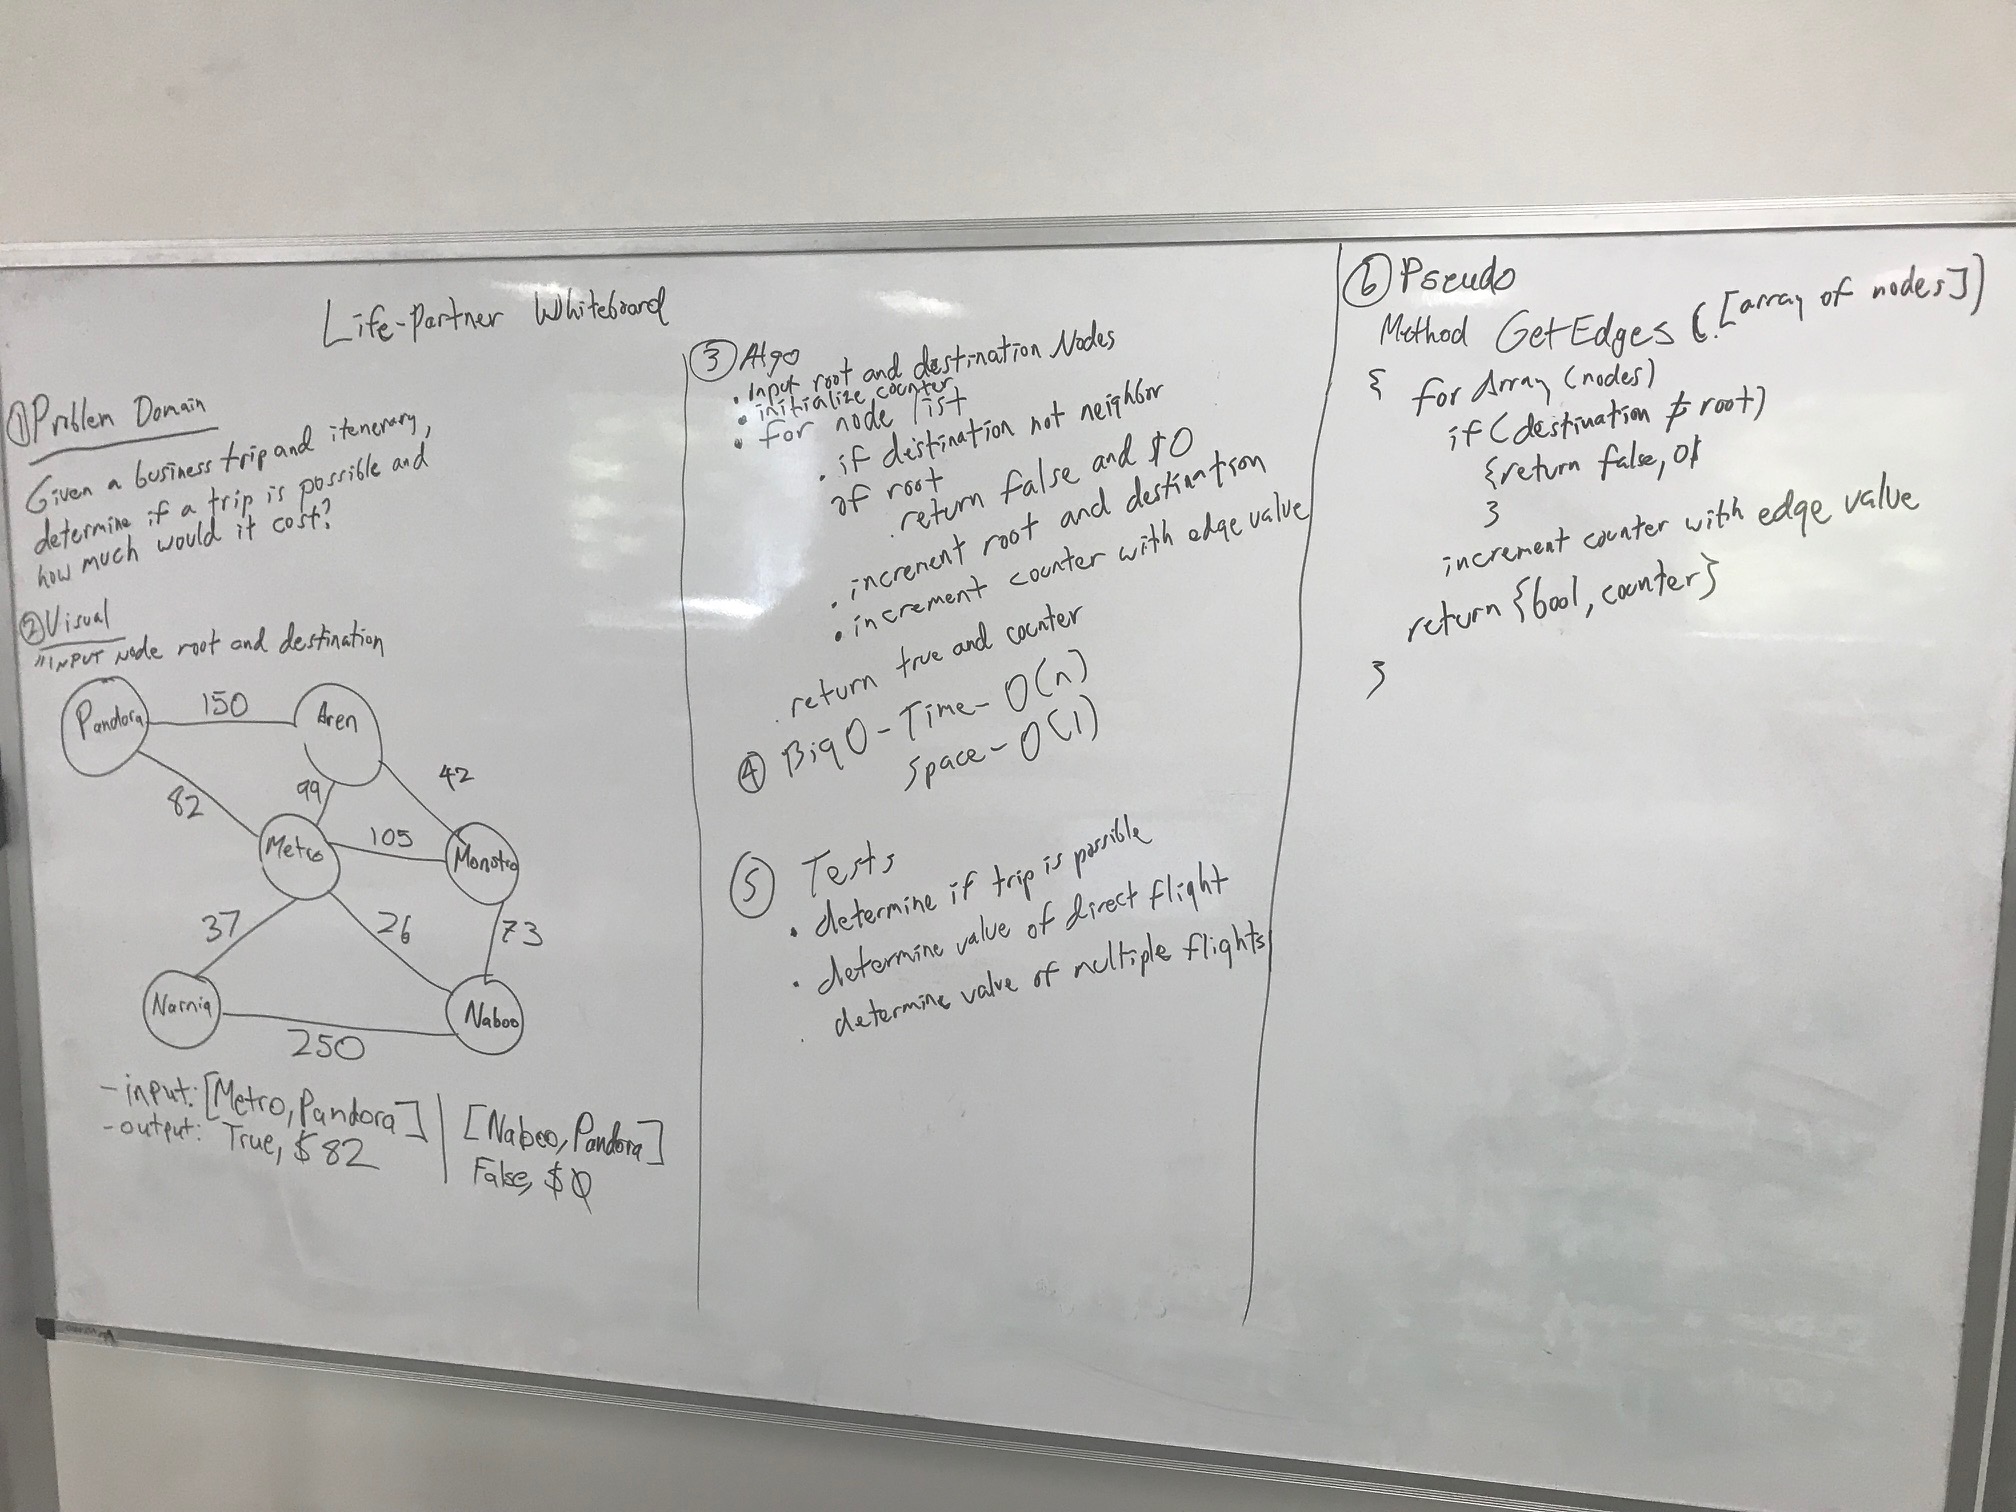 Life-Partner Whiteboard
① Problem Domain
Given a business trip and itenerary,
determine if a trip is possible and
how much would it cost?
② Visual
"INPUT Node root and destination
Pandora
150
Aren
82
99
42
Metro
105
Monstro
37
26
73
Narnia
250
Naboo
- input: [Metro, Pandora] | [Naboo, Pandora]
- output: True, $82 | False, $0
③ Algo
• Input root and destination Nodes
• initialize counter
• for node list
• if destination not neighbor
of root
• return false and $0
• increment root and destination
• increment counter with edge value
• return true and counter
④ Big O - Time - O(n)
Space - O(1)
⑤ Tests
• determine if trip is possible
• determine value of direct flight
• determine value of multiple flights
⑥ Pseudo
Method GetEdges ([array of nodes])
{ for Array (nodes)
if (destination ≠ root)
{return false, 0$
}
increment counter with edge value
return {bool, counter}
}